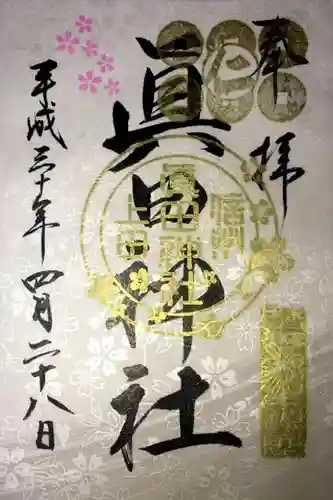 奉拝
眞田神社
平成三十年四月二十八日
信州
上田